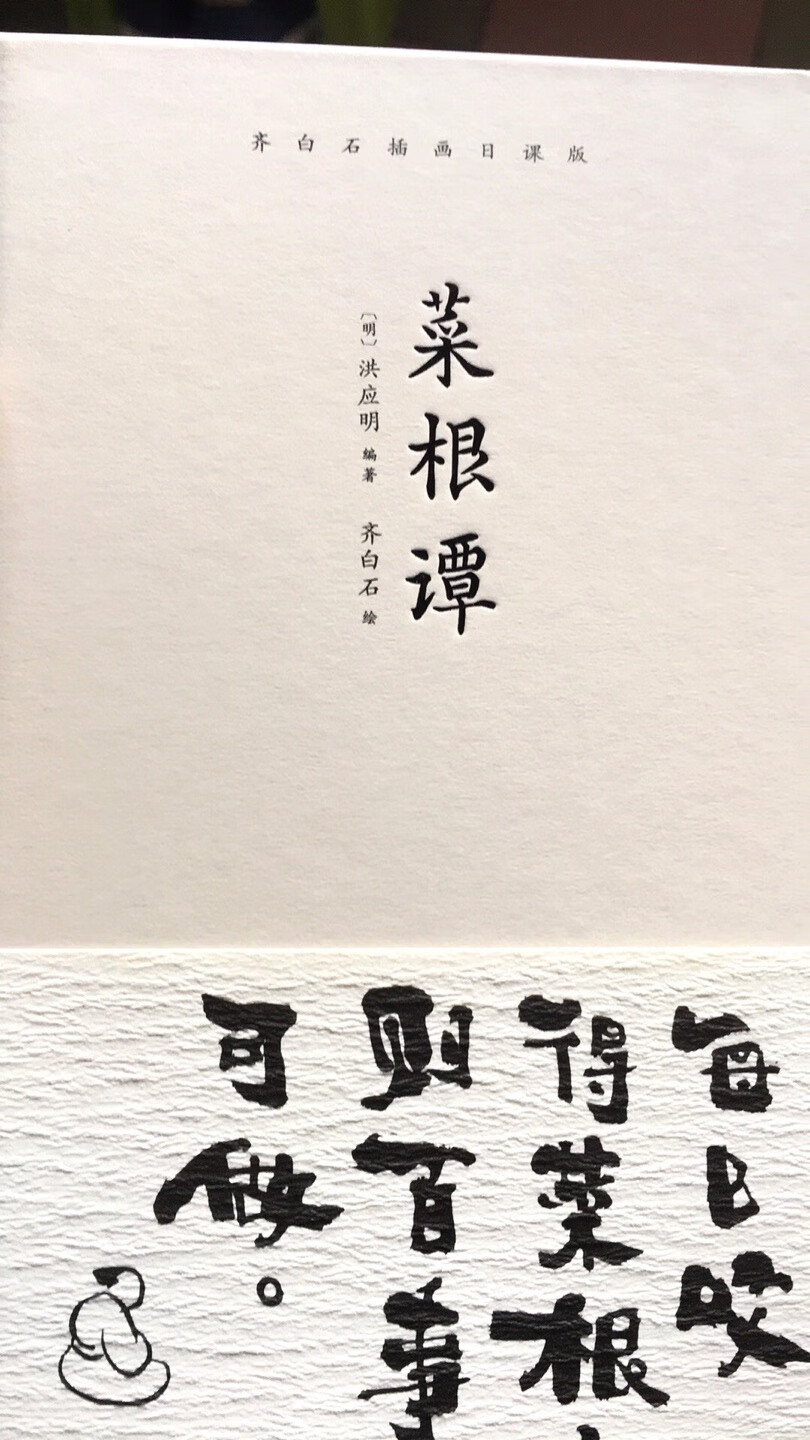 齐白石插画日课版
菜根谭
〔明〕洪应明 编著 齐白石 绘
每日咬
得菜根
则百事
可做。